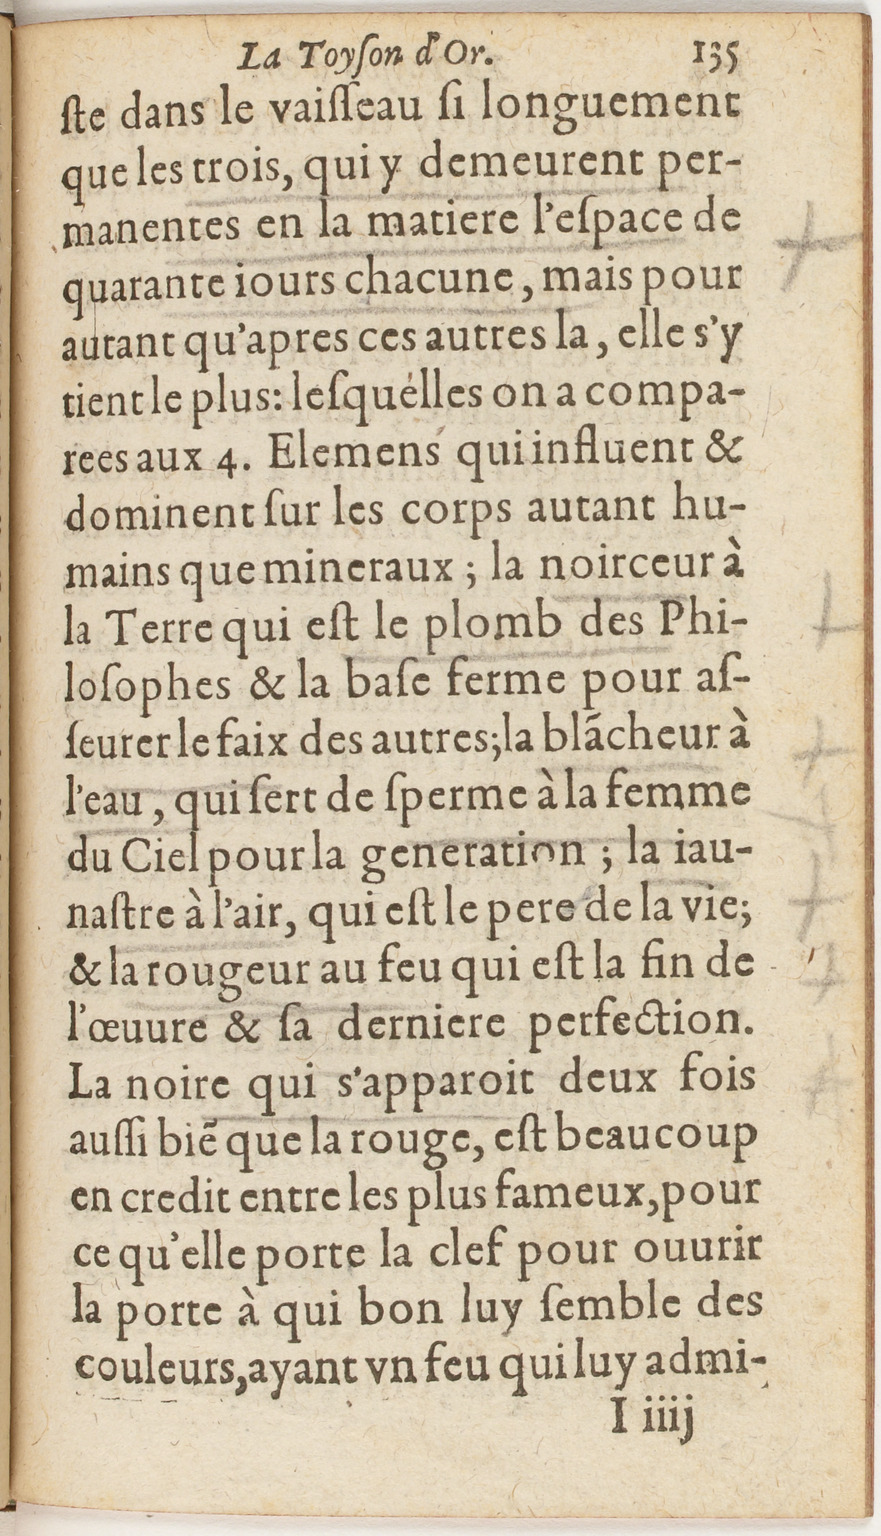 La Toyſon d'Or. 135
ſte dans le vaiſſeau ſi longuement
que les trois, qui y demeurent per-
manentes en la matiere l'eſpace de
quarante iours chacune, mais pour
autant qu'apres ces autres la, elle s'y
tient le plus: leſquelles on a compa-
rees aux 4. Elemens qui influent &
dominent ſur les corps autant hu-
mains que mineraux ; la noirceur à
la Terre qui eſt le plomb des Phi-
loſophes & la baſe ferme pour aſ-
ſeurer le faix des autres; la blãcheur à
l'eau, qui ſert de ſperme à la femme
du Ciel pour la generation ; la iau-
naſtre à l'air, qui eſt le pere de la vie;
& la rougeur au feu qui eſt la fin de
l'œuure & ſa derniere perfection.
La noire qui s'apparoit deux fois
auſſi biẽ que la rouge, eſt beaucoup
en credit entre les plus fameux, pour
ce qu'elle porte la clef pour ouurir
la porte à qui bon luy ſemble des
couleurs, ayant vn feu qui luy admi-
I iiij